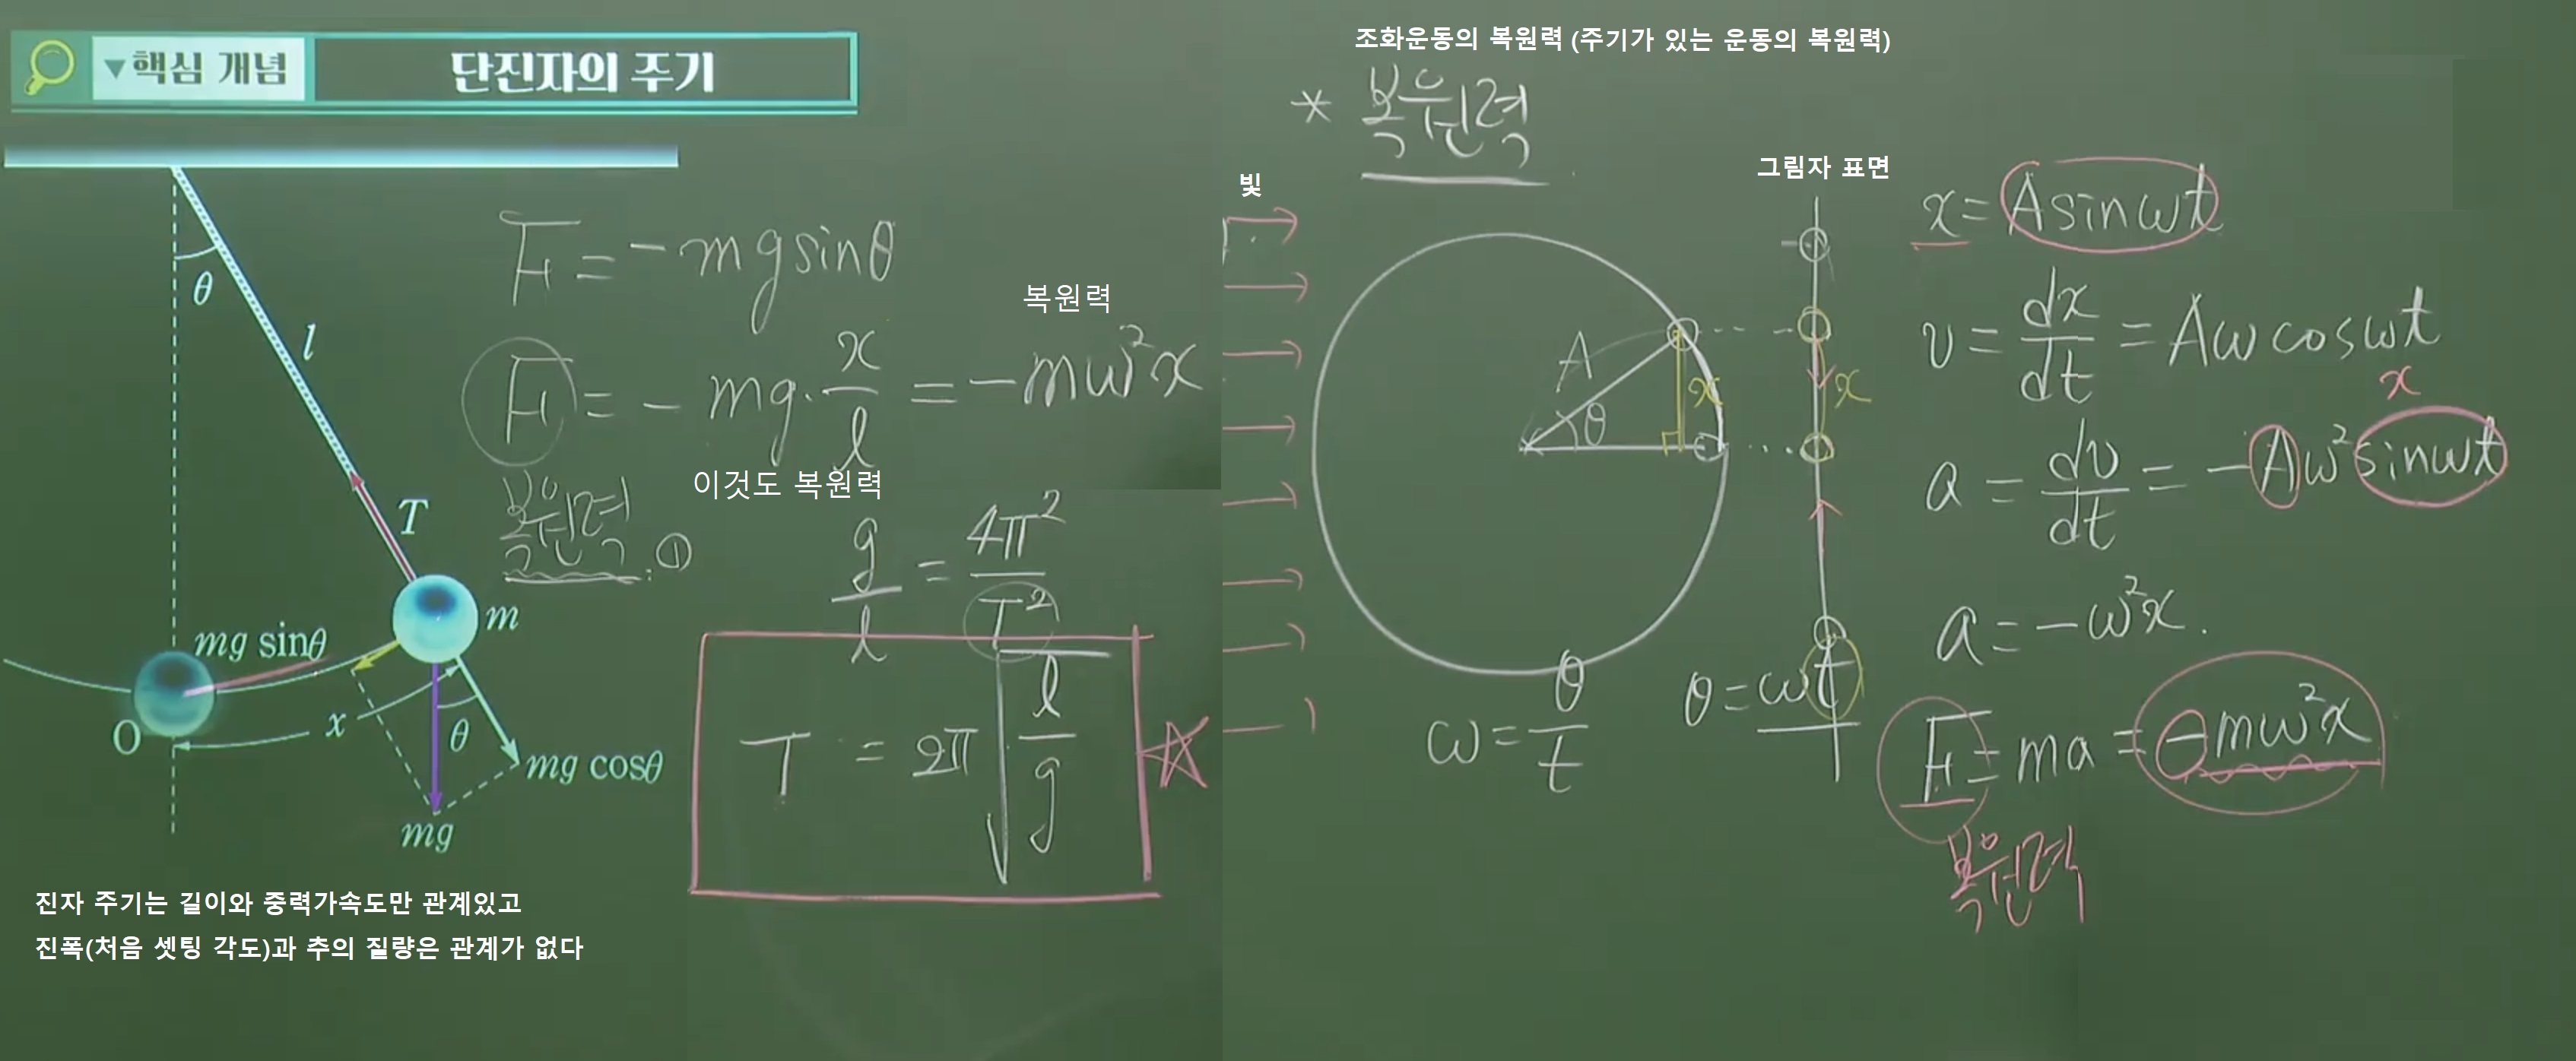 ▼핵심 개념 단진자의 주기
θ
l
T
m
mg sinθ
O
x
θ
mg cosθ
mg
F = -mg sinθ
복원력
F = - mg · x/l = -mω²x
복원력 : ①
이것도 복원력
g/l = 4π²/T²
T = 2π√(l/g)
진자 주기는 길이와 중력가속도만 관계있고
진폭(처음 셋팅 각도)과 추의 질량은 관계가 없다
조화운동의 복원력 (주기가 있는 운동의 복원력)
* 복원력
빛
그림자 표면
A
θ
x
x
ω = θ/t
θ = ωt
x = A sinωt
v = dx/dt = Aω cosωt
x
a = dv/dt = -Aω² sinωt
a = -ω²x.
F = ma = -mω²x
복원력